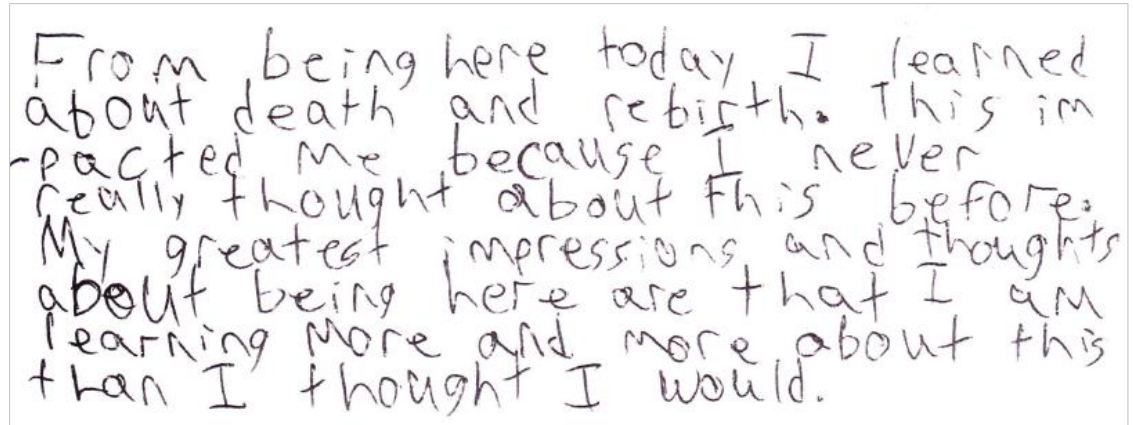 From being here today I learned
about death and rebirth. This im
-pacted me because I never
really thought about this before.
My greatest impressions and thoughts
about being here are that I am
learning more and more about this
than I thought I would.